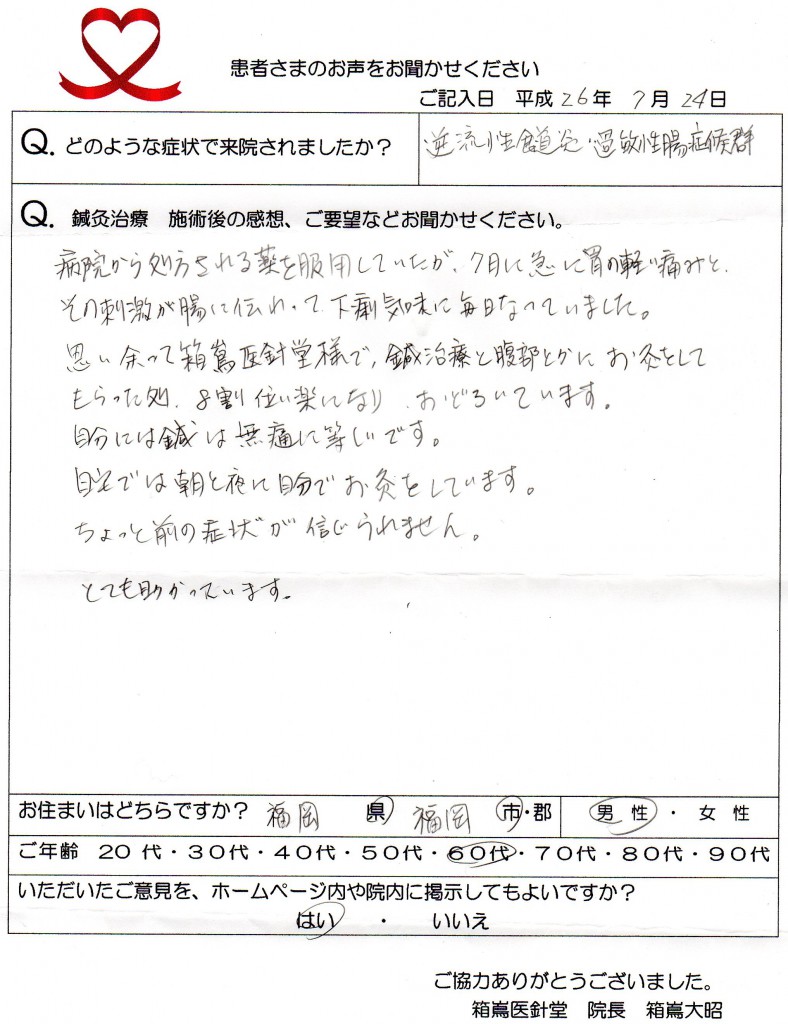 患者さまのお声をお聞かせください
ご記入日 平成26年 7月 24日
Q. どのような症状で来院されましたか? 逆流性食道炎・過敏性腸症候群
Q. 鍼灸治療 施術後の感想、ご要望などお聞かせください。
病院から処方される薬を服用していたが、7月に急に胃の軽い痛みと、
その刺激が腸に伝わって、下痢気味に毎日なっていました。
思い余って箱嶌医針堂様で、鍼治療と腹部とかにお灸をして
もらった処、8割位い楽になり、おどろいています。
自分には鍼は無痛に等しいです。
自宅では朝と夜に自分でお灸をしています。
ちょっと前の症状が信じられません。
とても助かっています。
お住まいはどちらですか? 福岡 県 福岡 市・郡 男性 ・ 女性
ご年齢 20代・30代・40代・50代・60代・70代・80代・90代
いただいたご意見を、ホームページ内や院内に掲示してもよいですか?
はい ・ いいえ
ご協力ありがとうございました。
箱嶌医針堂 院長 箱嶌大昭